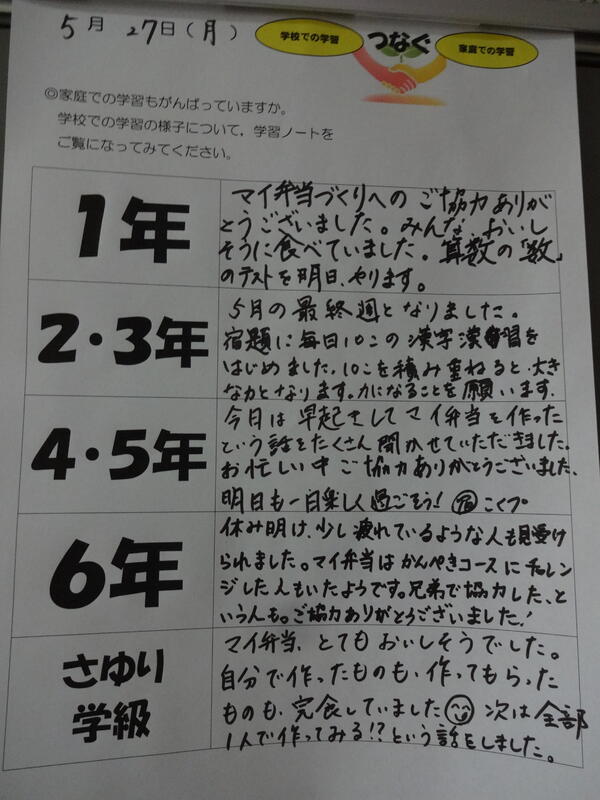 5月 27日(月)
学校での学習 つなぐ 家庭での学習
◎家庭での学習もがんばっていますか。
学校での学習の様子について,学習ノートを
ご覧になってみてください。
1年
マイ弁当づくりへの ご協力ありが
とうございました。みんな、おいし
そうに食べていました。算数の「数」
のテストを明日、やります。
2・3年
5月の最終週となりました。
宿題に毎日10この漢字練習を
はじめました。10こを積み重ねると、大き
な力となります。力になることを願います。
4・5年
今日は早起きしてマイ弁当を作った
という話をたくさん聞かせていただきました。
お忙しい中ご協力ありがとうございました。
明日も一日楽しく過ごそう! 宿こくプ
6年
休み明け、少し疲れているような人も見受け
られました。マイ弁当はかんぺきコースにチャレン
ジした人もいたようです。兄弟で協力した、と
いう人も。ご協力ありがとうございました!
さゆり
学級
マイ弁当、とてもおいしそうでした。
自分で作ったものも、作ってもらった
ものも、完食していました 次は全部
1人で作ってみる!?という話をしました。